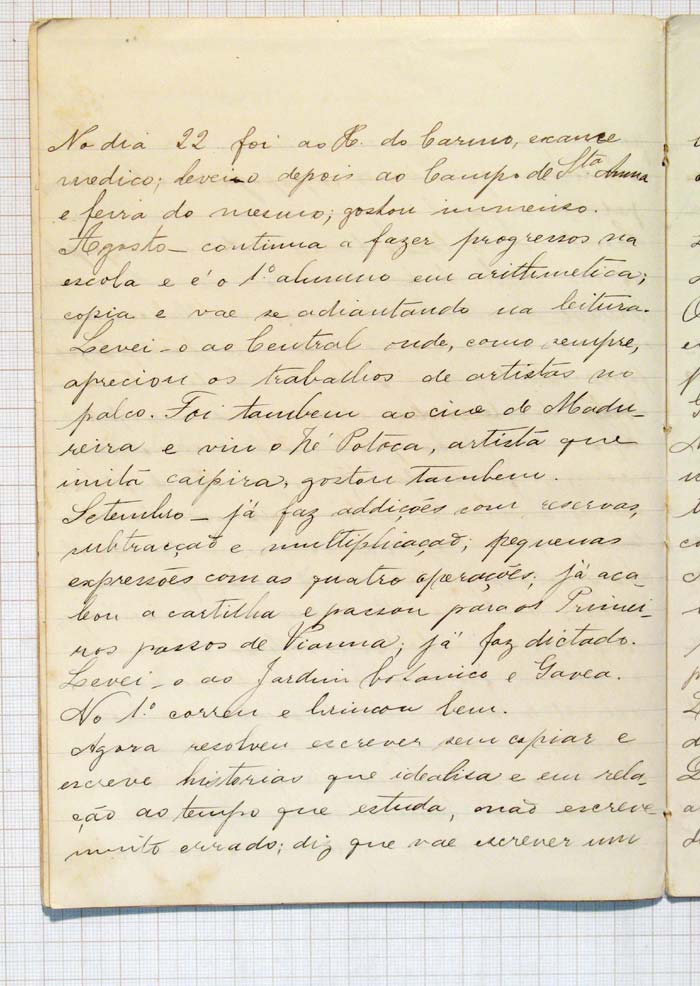 No dia 22 foi ao H. do Carmo, exame
medico; levei-o depois ao Campo de Sta Anna
e feira do mesmo; gostou immenso.
Agosto - continua a fazer progressos na
escola e é o 1º alumno em arithmetica;
copia e vae se adiantando na leitura.
Levei-o ao Central onde, como sempre,
apreciou os trabalhos de artistas no
palco. Foi tambem ao cine de Madu-
reira e viu o Zé Potoca, artista que
imita caipira, gostou tambem.
Setembro - já faz addições com reservas,
subtracção e multiplicação; pequenas
expressões com as quatro operações; já aca-
bou a cartilha e passou para os Primei-
ros passos de Vianna; já faz dictado.
Levei-o ao Jardim botanico e Gavea.
No 1º correu e brincou bem.
Agora resolveu escrever sem copiar e
escreve historias que idealisa e em rela-
ção ao tempo que estuda, não escreve
muito errado; diz que vae escrever um